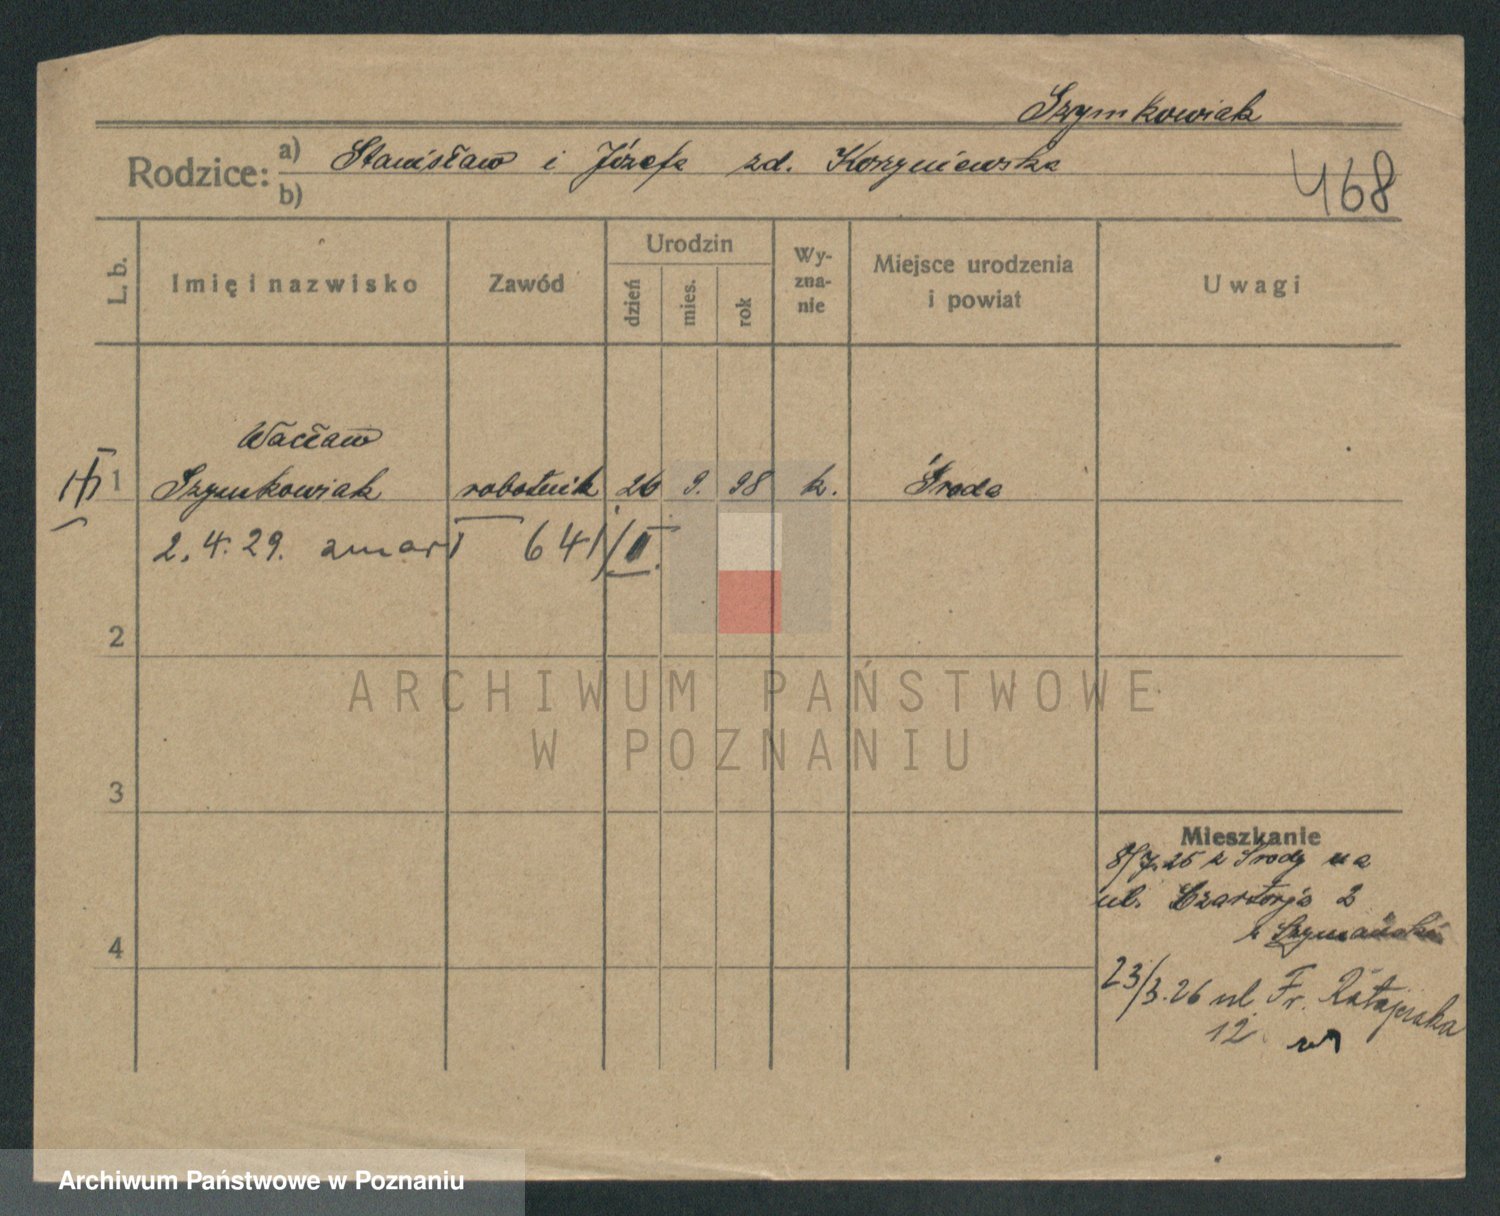 Szymkowiak
Rodzice: a) Stanisław i Józefa zd. Korzyniewska
b)
468
L. b.
Imię i nazwisko
Zawód
Urodzin
dzień
mies.
rok
Wy-
zna-
nie
Miejsce urodzenia
i powiat
Uwagi
Wacław
1 Szymkowiak robotnik 26 9. 98 k. Środa
2.4.29. zmarł 641/II.
2
3
4
ARCHIWUM PAŃSTWOWE
W POZNANIU
Mieszkanie
8/7.25 z Środy na
ul. Czartorja 2
23/3.26 ul Fr. Ratajczaka
12
Archiwum Państwowe w Poznaniu